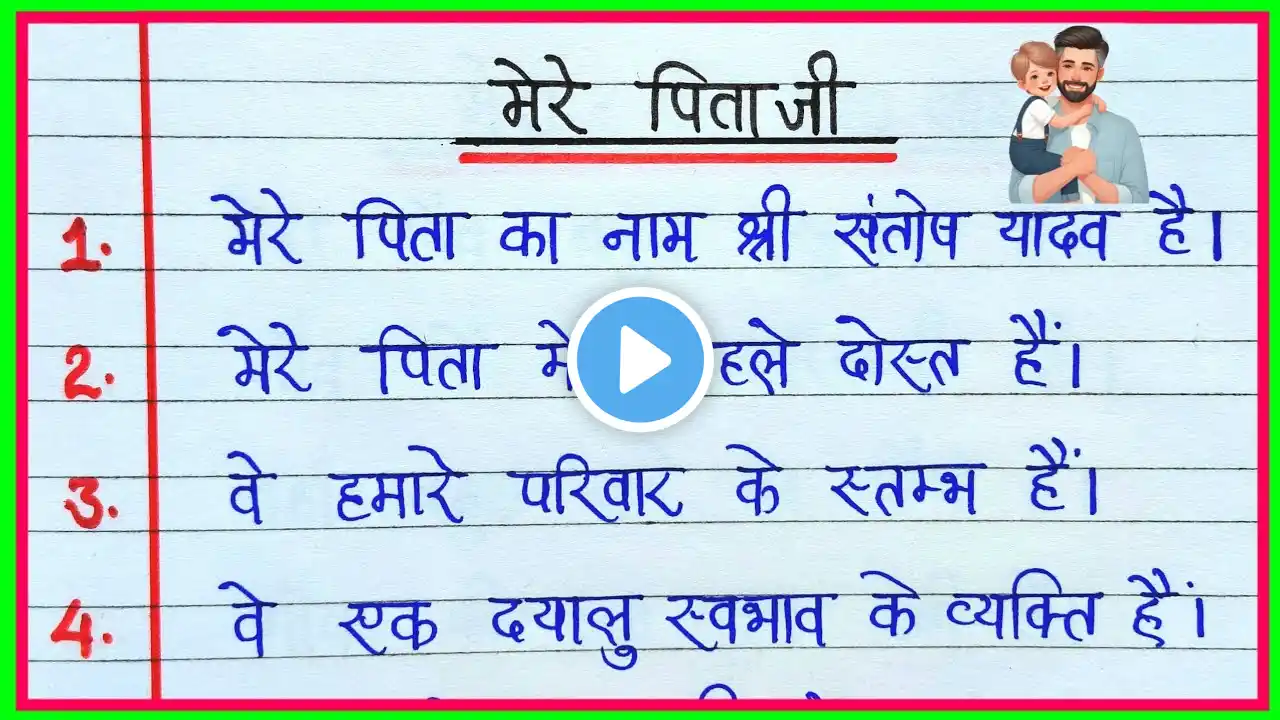 मेरे पिताजी
1. मेरे पिता का नाम श्री संतोष यादव है।
2. मेरे पिता हले दोस्त हैं।
3. वे हमारे परिवार के स्तम्भ हैं।
4. वे एक दयालु स्वभाव के व्यक्ति हैं।